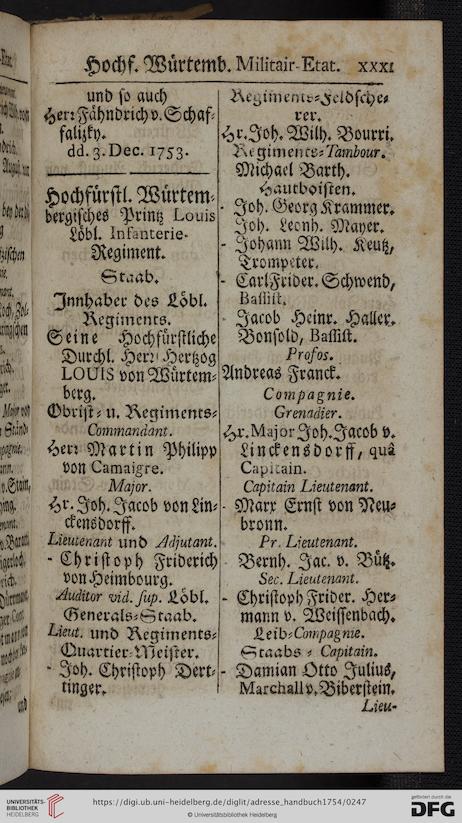 Hochf. Würtemb. Militair-Etat. XXXI
und so auch
Herr Fähndrich v. Schaf-
falitzky.
dd. 3. Dec. 1753.
Hochfürstl. Würtem-
bergisches Printz Louis
Löbl. Infanterie-
Regiment.
Staab.
Innhaber des Löbl.
Regiments.
Seine Hochfürstliche
Durchl. Herr Hertzog
LOUIS von Würtem-
berg.
Obrist- u. Regiments-
Commandant.
Herr Martin Philipp
von Camaigre.
Major.
Hr. Joh. Jacob von Lin-
ckensdorff.
Lieutenant und Adjutant.
- Christoph Friderich
von Heimbourg.
Auditor vid. sup. Löbl.
Generals-Staab.
Lieut. und Regiments-
Quartier-Meister.
- Joh. Christoph Dert-
tinger.
Regiments-Feldsche-
rer.
Hr. Joh. Wilh. Bourri.
Regiments-Tambour.
Michael Barth.
Hautboisten.
- Joh. Georg Krammer.
Joh. Leonh. Mayer.
- Johann Wilh. Keutz,
Trompeter.
- Carl Frider. Schwend,
Bassist.
- Jacob Heinr. Haller.
Bonsold, Bassist.
Profos.
Andreas Franck.
Compagnie.
Grenadier.
Hr. Major Joh. Jacob v.
Linckensdorff, quâ
Capitain.
Capitain Lieutenant.
- Marx Ernst von Neu-
bronn.
Pr. Lieutenant.
- Bernh. Jac. v. Bütz.
Sec. Lieutenant.
- Christoph Frider. Her-
mann v. Weissenbach.
Leib-Compagnie.
Staabs-Capitain.
- Damian Otto Julius,
Marchall v. Biberstein.
Lieu-
UNIVERSITÄTS-
BIBLIOTHEK
HEIDELBERG
https://digi.ub.uni-heidelberg.de/diglit/adresse_handbuch1754/0247
© Universitätsbibliothek Heidelberg
gefördert durch die
DFG